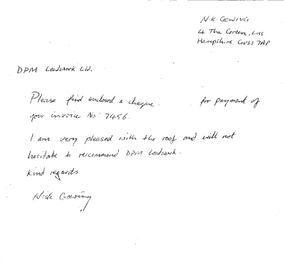 N.K Gosling
The Green, Liss
Hampshire GU33 7AP
DPM Leadwork Ltd.
Please find enclosed a cheque for payment of
your invoice No: 7456.
I am very pleased with the roof and will not
hesitate to reccommend DPM Leadwork.
Kind regards
Nick Gosling